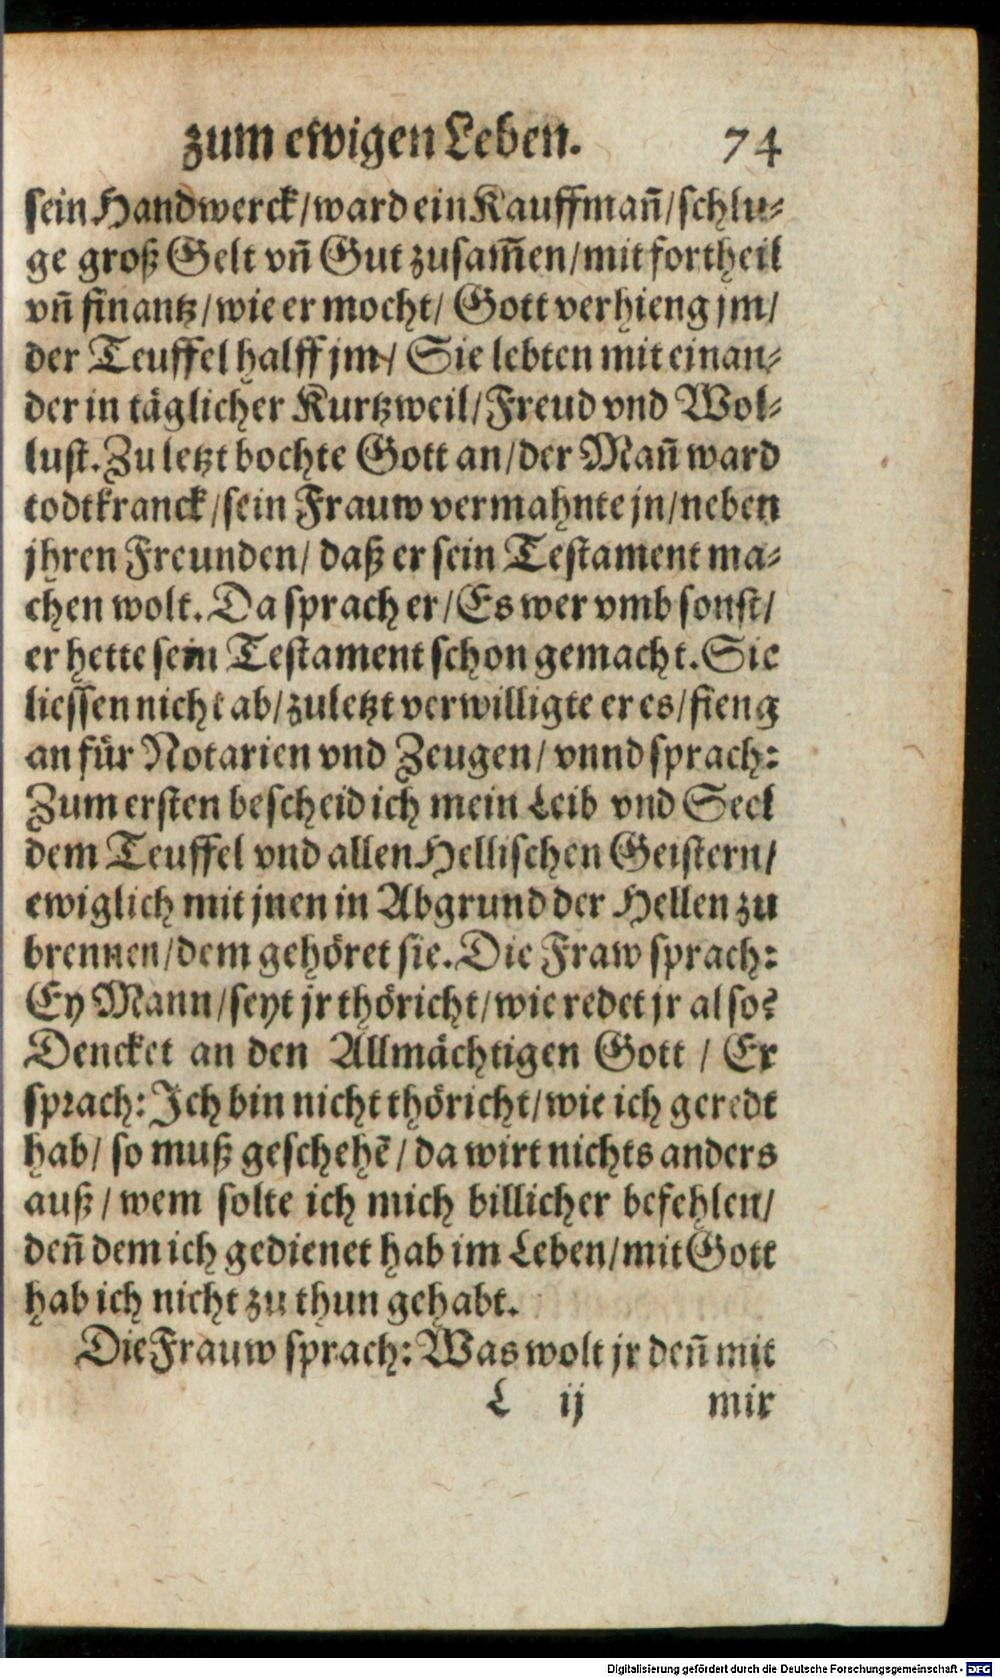 zum ewigen Leben. 74
sein Handwerck/ward ein Kauffmañ/schlu-
ge groß Gelt vñ Gut zusam̃en/mit fortheil
vñ finantz/wie er mocht/ Gott verhieng jm/
der Teuffel halff jm/ Sie lebten mit einan-
der in täglicher Kurtzweil/Freud vnd Wol-
lust. Zu letzt bochte Gott an/der Mañ ward
todtkranck/sein Frauw vermahnte jn/neben
jhren Freunden/ daß er sein Testament ma-
chen wolt. Da sprach er/Es wer vmb sonst/
er hette sein Testament schon gemacht. Sie
liessen nicht ab/zuletzt verwilligte er es/fieng
an für Notarien vnd Zeugen/ vnnd sprach:
Zum ersten bescheid ich mein Leib vnd Seel
dem Teuffel vnd allen Hellischen Geistern/
ewiglich mit jnen in Abgrund der Hellen zu
brennen/dem gehöret sie. Die Fraw sprach:
Ey Mann/seyt jr thöricht/wie redet jr also?
Dencket an den Allmächtigen Gott / Er
sprach: Ich bin nicht thöricht/wie ich geredt
hab/ so muß geschehē/da wirt nichts anders
auß/wem solte ich mich billicher befehlen/
deñ dem ich gedienet hab im Leben/mit Gott
hab ich nicht zu thun gehabt.
Die Frauw sprach: Was wolt jr deñ mit
L ij mir
Digitalisierung gefördert durch die Deutsche Forschungsgemeinschaft - DFG